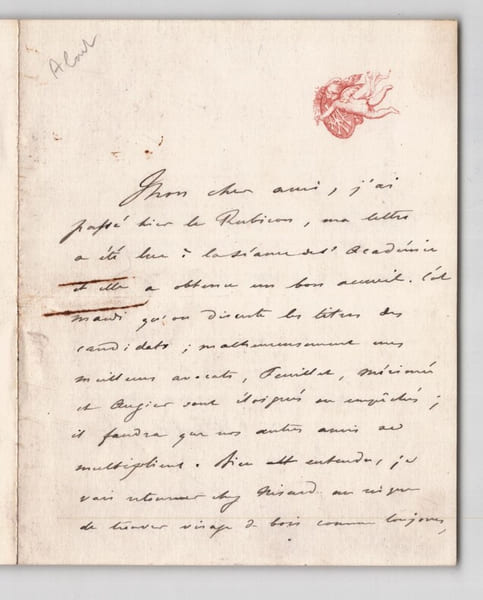 About
Mon cher ami, j'ai
passé hier le Rubicon, ma lettre
a été lue à la séance de l'Académie
et elle a obtenu un bon accueil. C'est
mardi qu'on discute les titres des
candidats ; malheureusement mes
meilleurs avocats, Feuillet, Mérimée
et Augier sont éloignés ou empêchés ;
il faudra que nos autres amis se
multiplient. Bien entendu, je
vais retourner chez Nisard au risque
de trouver visage de bois comme toujours,